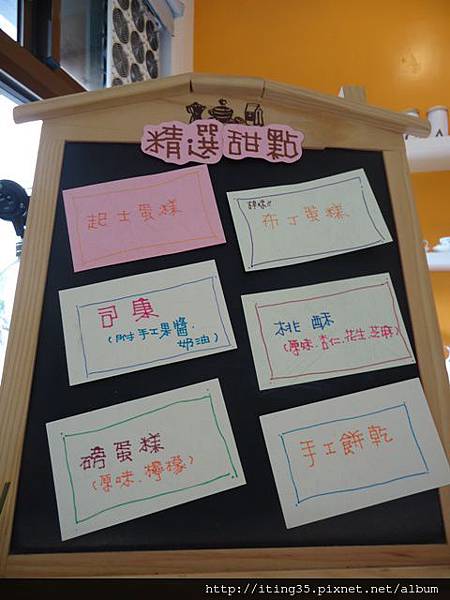 精選甜點
起士蛋糕
布丁蛋糕
司康
(附手工果醬.
奶油)
桃酥
(原味.杏仁.花生.芝麻)
磅蛋糕
(原味.檸檬)
手工餅乾
http://iting35.pixnet.net/album